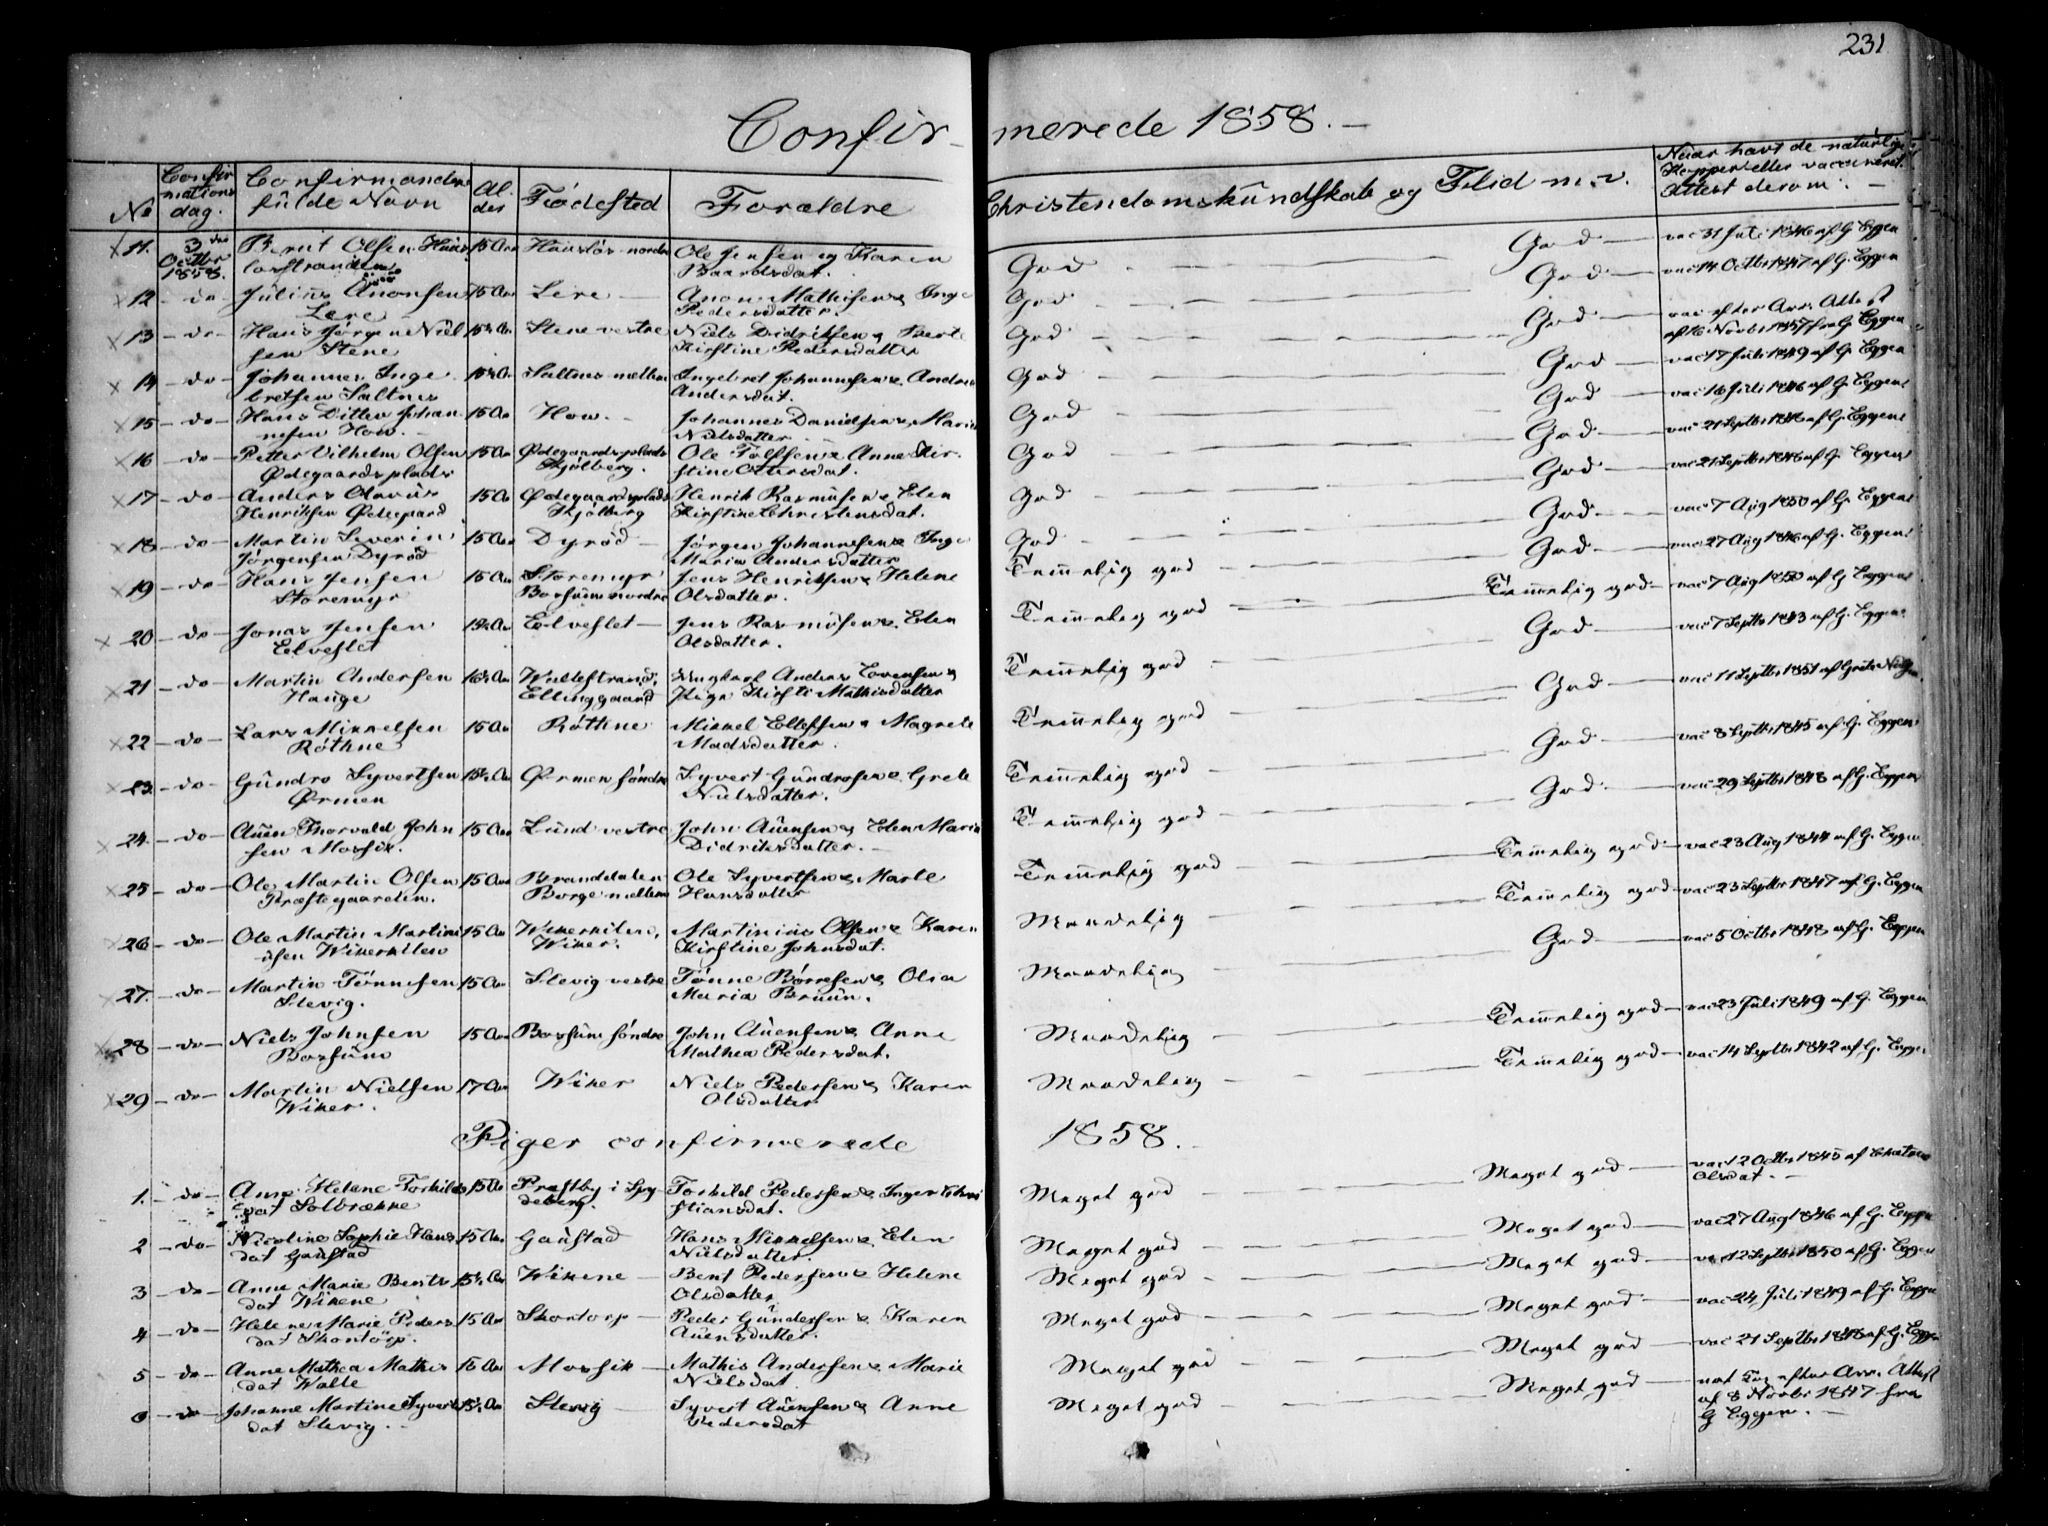 231
Confirmerede 1858. —
No
Confirmations dag.
Confirmandens fulde Navn
Alder
Fødested
Forældre
Christendomskundskab og Flid m.v.
Naar havt de naturlige Kopper eller vaccineret. Attest derom. —
11. 3die Octbr 1858. Bernt Olsen 15 Aar nordre Ole Jensen og Karen Baardsdat. God — God — vac 31 Juli 1846 af G. Eggen
12 — do — Julius Anonsen Lere 15 Aar Lere — Anon Mathisen & Inge Pedersdatter. God — God — vac 14 Octbr 1847 af G. Eggen
13 — do — Hans Jørgen Nielsen Stene 15½ Aar Stene vestre Niels Didriksen & Berte Kirstine Pedersdatter God — God — vac efter Ann. Attest af 16 Novbr 1857 fra G. Eggen
14 — do — Johannes Ingebretsen Saltnes 15½ Aar Saltnes mellem Ingebret Johannesen & Andrea Andersdat. God — God — vac 17 Juli 1849 af G. Eggen
15 — do — Hans Ditlev Johannesen How. — 15 Aar How. — Johannes Danielsen & Maria Nielsdatter God — God — vac 16 Juli 1846 af G. Eggen
16 — do — Petter Vilhelm Olsen Ødegaardsplads 15 Aar Ødegaardsplads Skjølberg. Ole Tolfsen & Anne Kirstine Ottersdat. God — God — vac 21 Septbr 1846 af G. Eggen
17 — do — Anders Olavus Henriksen Ødegaard 15 Aar Ødegaardsplads Skjølberg Henrik Rasmusen & Elen Kirstine Christensdat. God — God — vac 21 Septbr 1846 af G. Eggen
18 — do — Martin Severin Jørgensen Dyrød 15 Aar Dyrød — Jørgen Johannesen & Inge Maria Andersdatter God — God — vac 7 Aug 1850 af G. Eggen
19 — do — Hans Jensen Storemyr 15 Aar Storemyr Borsum nordre Jens Henriksen & Helene Olsdatter. Temmelig god — God — vac 27 Aug 1846 af G. Eggen
20 — do — Jonas Jensen Elveflet Elveflet — Jens Rasmusen & Elen Olsdatter. Temmelig god — Temmelig god — vac 7 Aug 1850 af G. Eggen
21 — do — Martin Andersen Hauge 16½ Aar Wallestrand, Ellinggaard Ungkarl Anders Lorensen & Pige Kirsti Mathisdatter Temmelig god — God — vac 7 Septbr 1843 af G. Eggen
22 — do — Lars Mikkelsen Røthne 15 Aar Røthne Mikkel Ellefsen & Magrete Madsdatter. Temmelig god — God — vac 11 Septbr 1851 af Grete
23. — do — Gundro Syvertsen Ørmen 15½ Aar Ørmen søndre Syvert Gundrosen & Grete Nielsdatter. Temmelig god — God — vac 8 Septbr 1845 af G. Eggen
24. — do — Auen Thorvald Johnsen Mossik. 15 Aar Lund vestre John Auensen & Elen Maria Didriksdatter. — Temmelig god — God — vac 29 Septbr 1848 af G. Eggen
25 — do — Ole Martin Olsen Præstegaarden. 15 Aar Branddalen Borge mellem Ole Syvertsen & Marte Hansdatter Temmelig god — Temmelig god — vac 23 Aug 1844 af G. Eggen
26 — do — Ole Martin Martinusen Wikerkilen 15 Aar Wikerkilen, Wiker. Martinius Olsen & Karen Kirstine Johnsdat. Maadelig — Temmelig god — vac 23 Septbr 1847 af G. Eggen
27. — do — Martin Tønnesen Slevig. 15 Aar Slevig vestre Tønne Børresen & Olia Maria Bruun. Maadelig — God — vac 5 Octbr 1848 af G. Eggen
28 — do — Niels Johnsen Borsum 15 Aar Borsum søndre John Auensen & Anne Mathea Pedersdat. Maadelig — Temmelig god — vac 23 Juli 1849 af G. Eggen
29 — do — Martin Nielsen Wiker. 17 Aar Wiker Niels Pedersen & Karen Olsdatter Maadelig — Temmelig god — vac 14 Septbr 1842 af G. Eggen
Piger confirmerede 1858.
1. — do — Anne Helene Torkildsdat Solbrække 15 Aar Præstby i Spydeberg. Torkild Pedersen & Inger Christiansdat. Meget god — Meget god — vac 12 Octbr 1845 af Olsdat. —
2 — do — Nicoline Sophie Hansdat Gaustad 15 Aar Gaustad Hans Mikkelsen & Elen Nielsdatter. Meget god — Meget god — vac 27 Aug 1846 af G. Eggen
3 — do — Anne Marie Berntsdat Wikene 15½ Aar Wikene — Bent Pedersen & Helene Olsdatter Meget god — Meget god — vac 12 Septbr 1850 af G. Eggen
4 — do — Helene Marie Pedersdat Skontorp. 15 Aar Skontorp — Peder Gundersen & Karen Auensdatter. Meget god — Meget god — vac 24 Juli 1849 af G. Eggen
5 — do — Anne Mathea Mathisdat Walle 15 Aar Mossik — Mathis Andersen & Marie Nielsdat Meget god — Meget god — vac 21 Septbr 1846 af G. Eggen
6 — do — Johanne Martine Syvertsdat Slevig. — 15½ Aar Slevig — Syvert Auensen & Anne Pedersdat Meget god — Meget god — efter Ann. Attest af 8 Novbr 1847 fra G Eggen. —